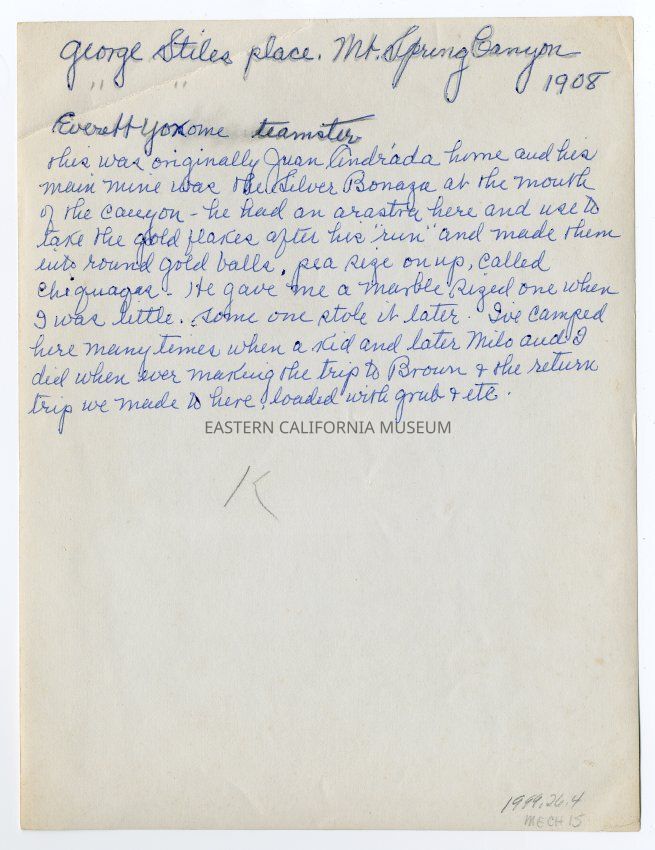 George Stiles place. Mt. Spring Canyon
" "
1908
Everett Yoxome teamster
this was originally Juan Andrada home and his
main mine was the Silver Bonaza at the mouth
of the canyon - he had an arastra here and use to
take the gold flakes after his "run" and made them
into round gold balls, pea size on up, called
chiquagas - He gave me a marble sized one when
I was little. Some one stole it later. I've camped
here many times when a kid and later Milo and I
did when ever making the trip to Brown & the return
trip we made to here, loaded with grub & etc.
EASTERN CALIFORNIA MUSEUM
K
1999.26.4
MECH 15